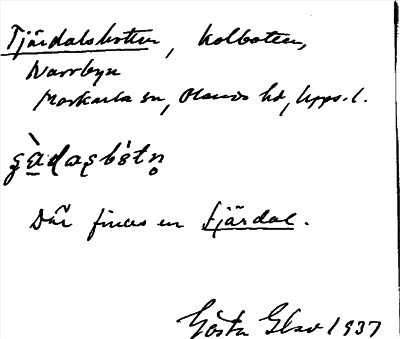 Tjärdalsbotten, kolbotten,
Norrbyn
Morkarla sn, Olands hd, Upps. l.
Där finns en tjärdal.
Gösta 1937